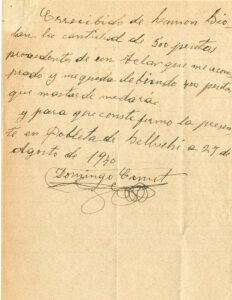 E rrecibido de Ramon Bio-
lan la cantidad de 500 pesetas
procedente de un telar que me acom
prado y me queda debiendo 400 pesetas
que mas tar de me dará
y para que conste firmo la presen
te en Pobleta de Bellvehí a 29 de
Agosto de 1930
Domingo Carnot